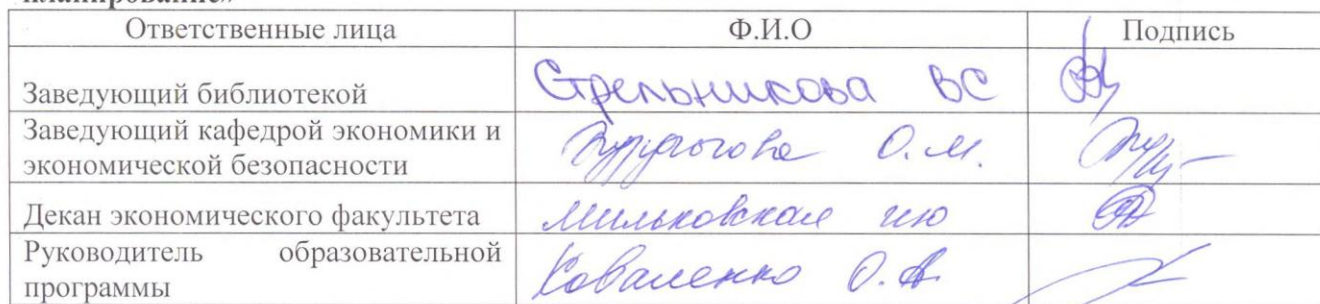 планирование»
Ответственные лица Ф.И.О Подпись
Заведующий библиотекой Стрельникова ВС
Заведующий кафедрой экономики и
экономической безопасности О.М.
Декан экономического факультета Мильковская ИЮ
Руководитель образовательной
программы Коваленко О.А.